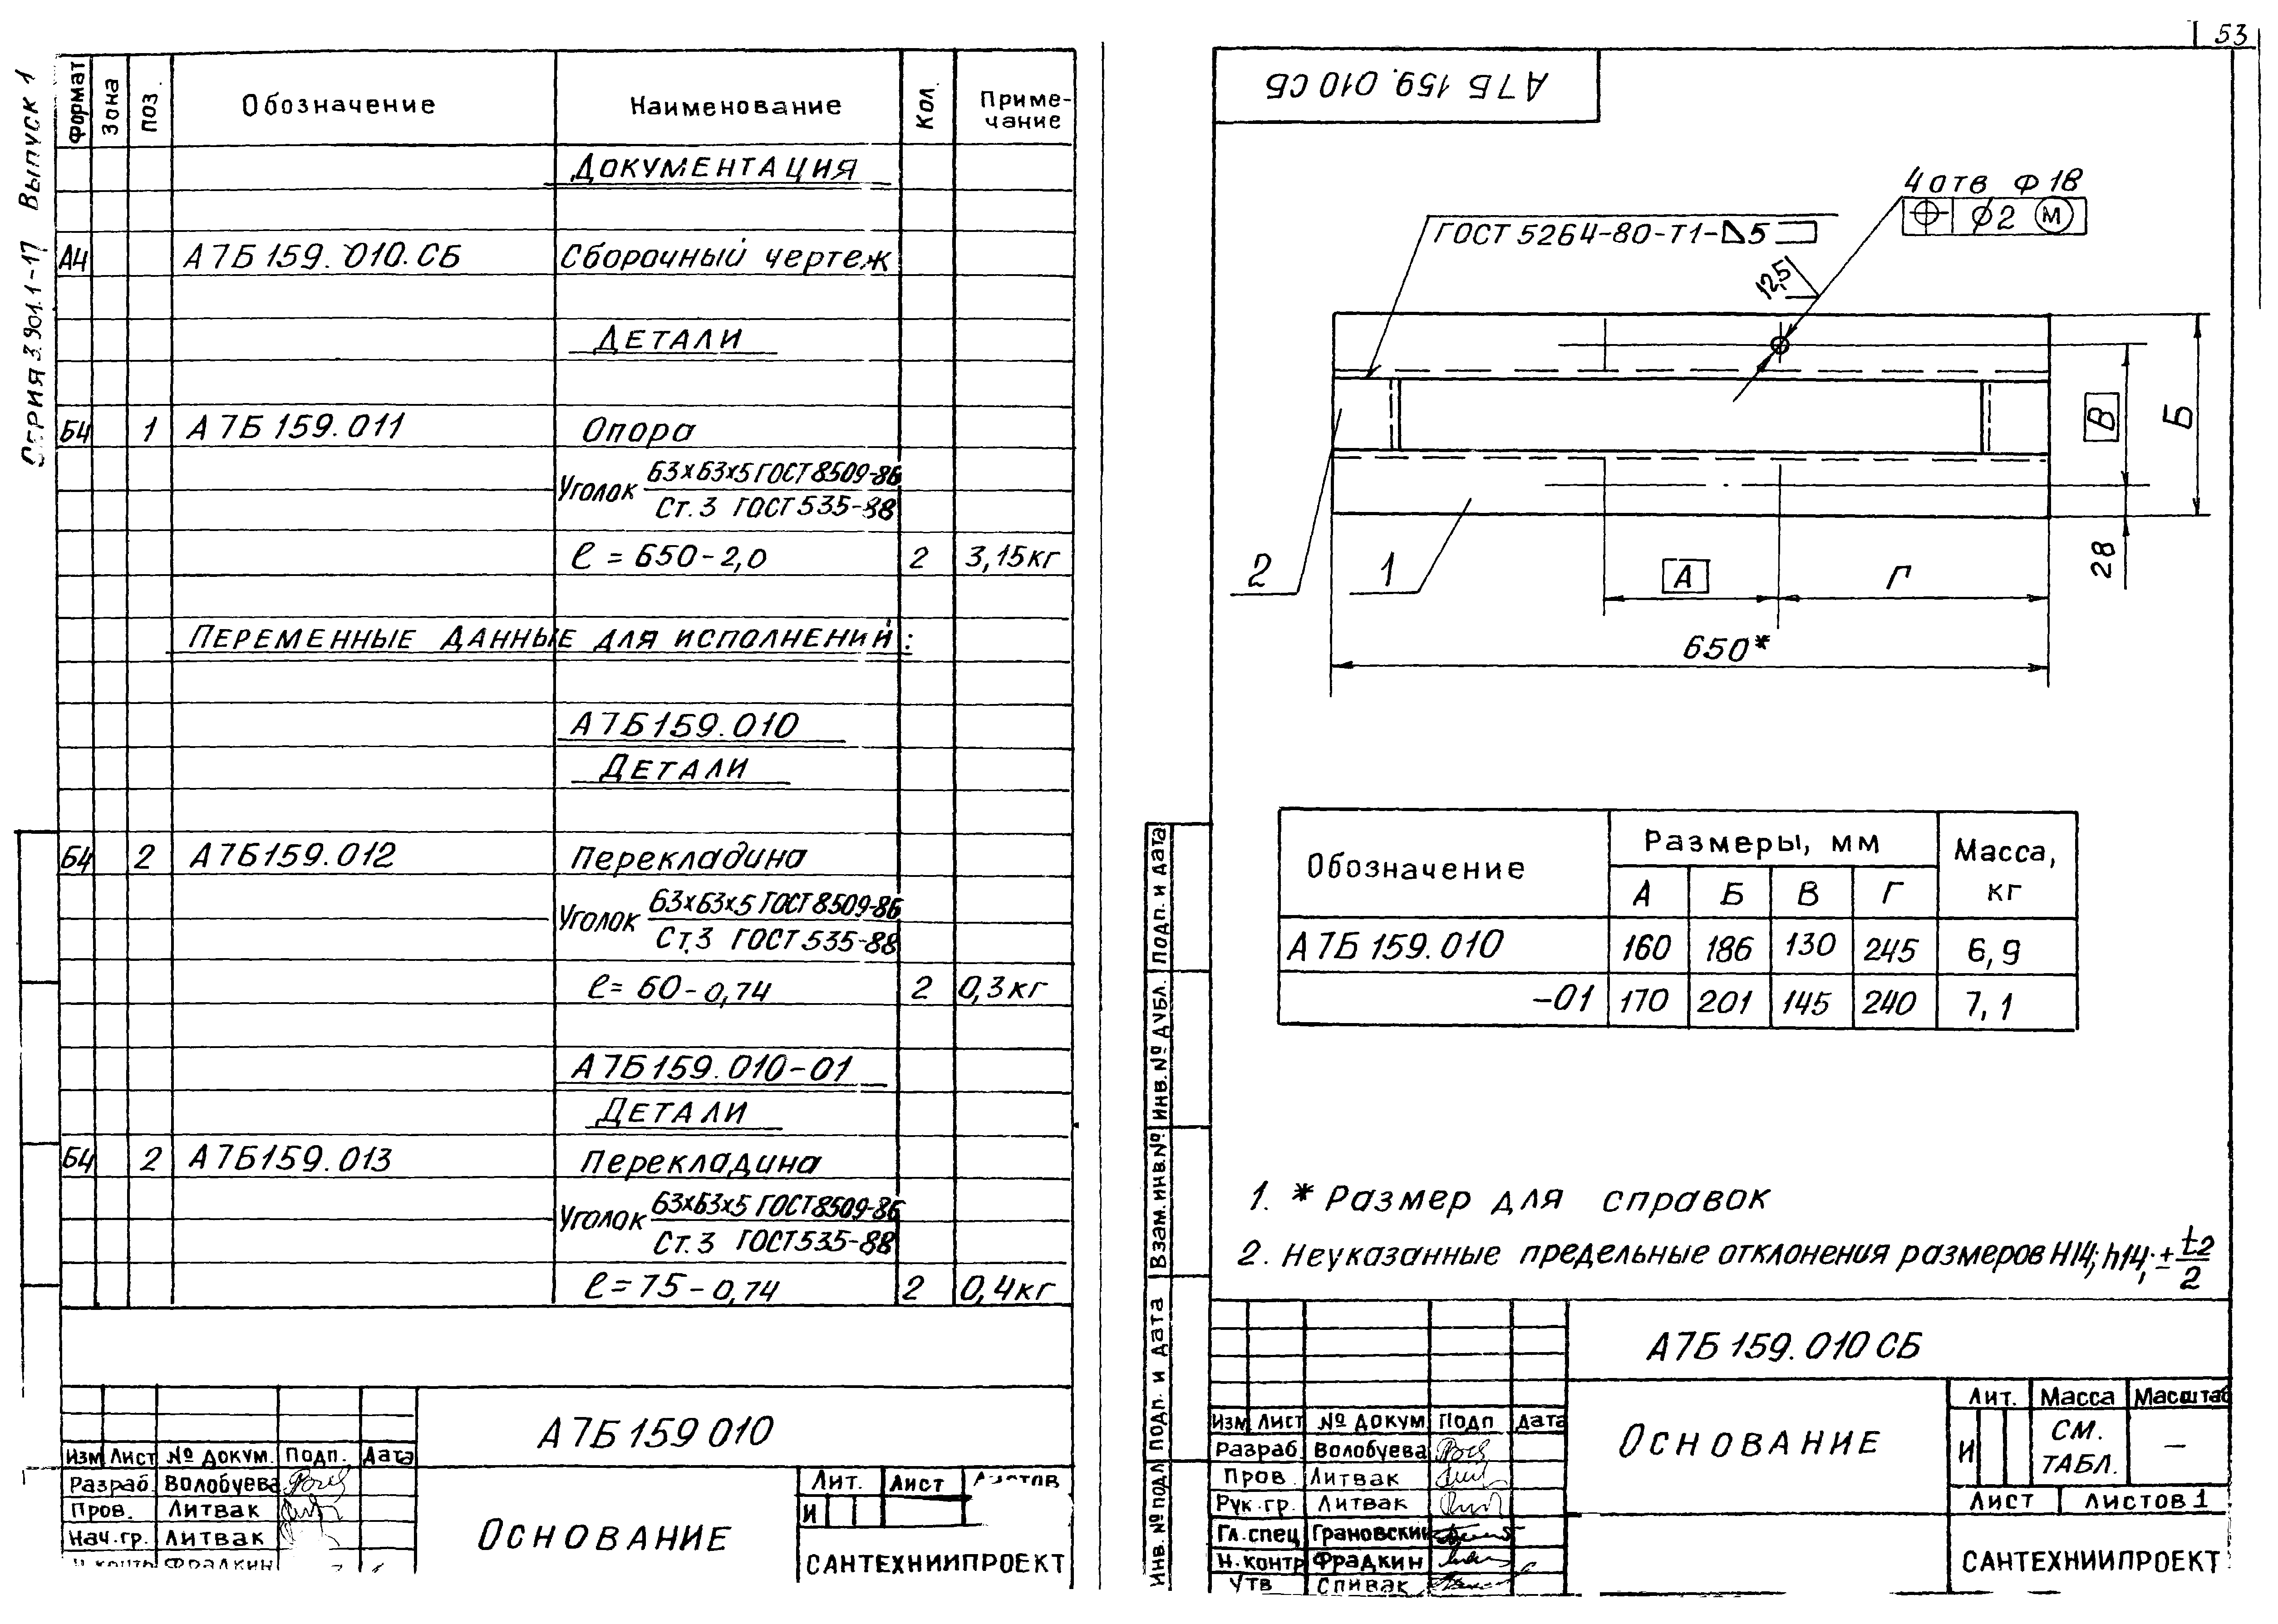 Серия 3.901.1-17 Выпуск 1
Формат Зона Поз. Обозначение Наименование Кол. Приме-
чание
Документация
А4 А7Б159.010.СБ Сборочный чертеж
Детали
Б4 1 А7Б159.011 Опора
Уголок 63х63х5 ГОСТ 8509-86
Ст.3 ГОСТ 535-88
ℓ = 650-2,0 2 3,15кг
Переменные данные для исполнений:
А7Б159.010
Детали
Б4 2 А7Б159.012 Перекладина
Уголок 63х63х5 ГОСТ 8509-86
Ст.3 ГОСТ 535-88
ℓ = 60-0,74 2 0,3кг
А7Б159.010-01
Детали
Б4 2 А7Б159.013 Перекладина
Уголок 63х63х5 ГОСТ 8509-86
Ст.3 ГОСТ 535-88
ℓ = 75-0,74 2 0,4кг
А7Б159 010
Изм Лист № докум. Подп. Дата
Разраб. Волобуева
Пров. Литвак
Нач.гр. Литвак
Н.контр Фрадкин
Основание
Лит. Лист Листов
И
САНТЕХНИИПРОЕКТ
53
А7Б 159.010 СБ
4 отв ф 18
⌖ ⌀2 Ⓜ
ГОСТ 5264-80-Т1-◺5
12,5
В
Б
28
2
1
А
Г
650*
Обозначение Размеры, мм Масса,
кг
А Б В Г
А7Б 159.010 160 186 130 245 6,9
-01 170 201 145 240 7,1
1. * Размер для справок
2. Неуказанные предельные отклонения размеров H14; h14; ± t2/2
Инв. № подл Подп. и дата Взам. инв.№ Инв. № дубл. Подп. и дата
А7Б 159.010 СБ
Изм Лист № докум Подп Дата
Разраб. Волобуева
Пров. Литвак
Рук.гр. Литвак
Гл.спец Грановский
Н.контр Фрадкин
Утв Спивак
Основание
Лит. Масса Масштаб
И см.
табл. —
Лист Листов 1
САНТЕХНИИПРОЕКТ